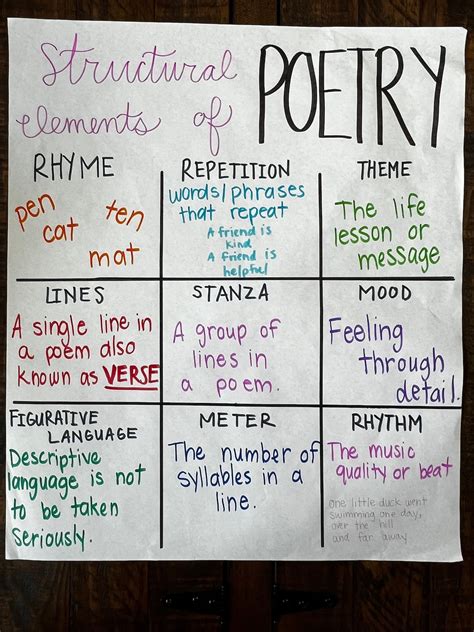 Structural
elements of POETRY
RHYME
pen
ten
cat
mat
REPETITION
words/phrases
that repeat
A friend is
kind
A friend is
helpful
THEME
The life
lesson or
message
LINES
A single line in
a poem also
known as VERSE
STANZA
A group of
lines in
a poem.
MOOD
Feeling
through
detail.
FIGURATIVE
LANGUAGE
Descriptive
language is not
to be taken
seriously.
METER
The number of
syllables in a
line.
RHYTHM
The music
quality or beat
one little duck went
swimming one day,
over the hill
and far away